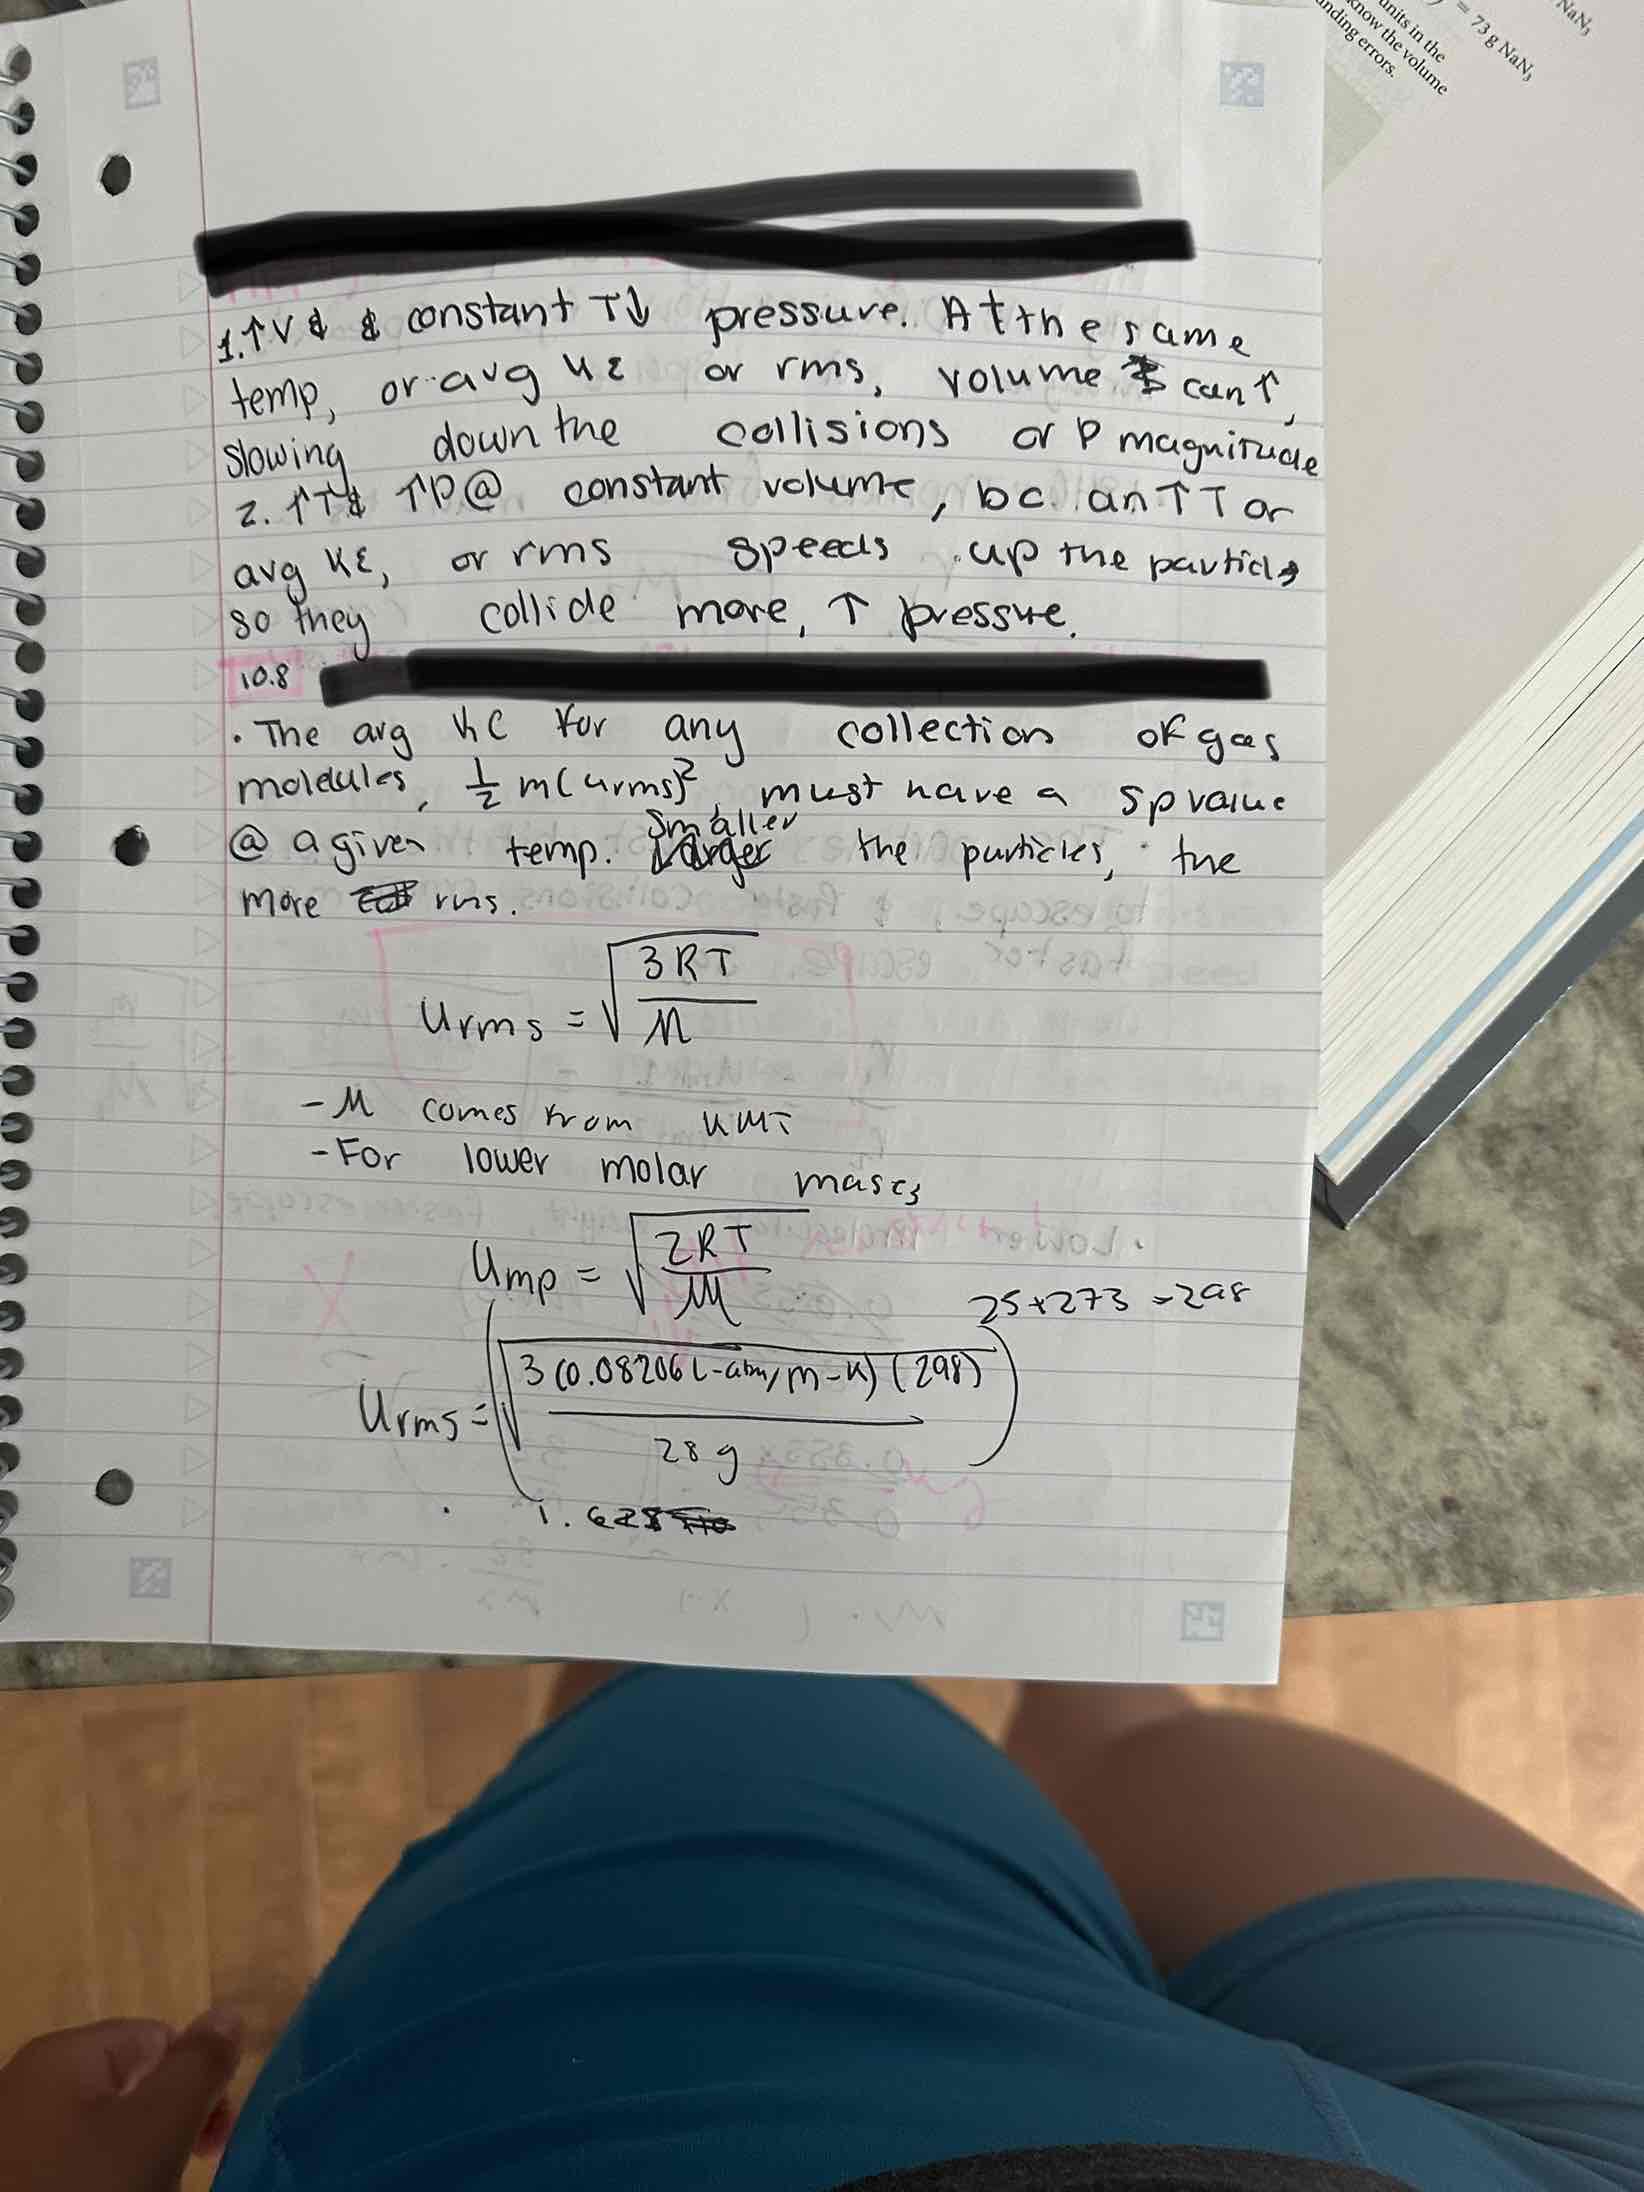 = 73 g NaN3
NaN3
units in the
know the volume
nding errors.
1. ↑V & constant T↓ pressure. At the same
temp, or avg KE or rms, volume can ↑,
slowing down the collisions or P magnitude
2. ↑T & ↑P @ constant volume, bc an ↑ T or
avg KE, or rms speeds up the particls
so they collide more, ↑ pressure.
10.8
· The avg KE for any collection of gas
moleules, 1/2 m(urms)², must have a sp value
@ a given temp. Smaller the particles, the
more rms.
Urms = √(3RT/M)
- M comes from KMT
- For lower molar mass,
Ump = √(2RT/M)
25+273 = 298
Urms = (√(3(0.08206 L-atm/m-K)(298)/28g))
1.628